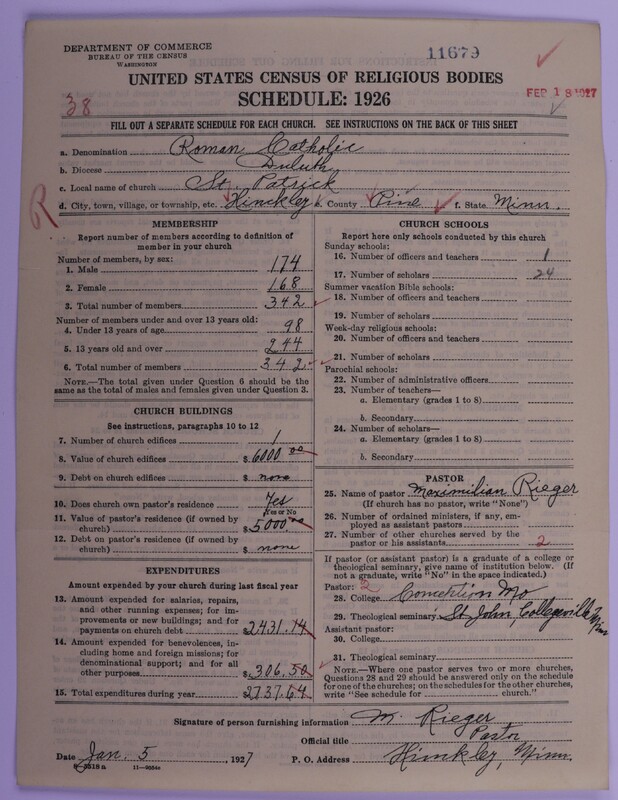 DEPARTMENT OF COMMERCE
BUREAU OF THE CENSUS
WASHINGTON
11679
FEB 18 1927
UNITED STATES CENSUS OF RELIGIOUS BODIES
38
SCHEDULE: 1926
FILL OUT A SEPARATE SCHEDULE FOR EACH CHURCH. SEE INSTRUCTIONS ON THE BACK OF THIS SHEET
a. Denomination Roman Catholic
b. Diocese Duluth
c. Local name of church St. Patrick
d. City, town, village, or township, etc. Hinckley County Pine f. State Minn.
R
MEMBERSHIP
Report number of members according to definition of
member in your church
Number of members, by sex:
1. Male 174
2. Female 168
3. Total number of members 342
Number of members under and over 13 years old:
4. Under 13 years of age 98
5. 13 years old and over 244
6. Total number of members 342
NOTE.—The total given under Question 6 should be
the same as the total of males and females given under Question 3.
CHURCH BUILDINGS
See instructions, paragraphs 10 to 12
7. Number of church edifices 1
8. Value of church edifices $ 6000 00
9. Debt on church edifices $ none
10. Does church own pastor's residence Yes
Yes or No
11. Value of pastor's residence (if owned by
church) $ 5000
12. Debt on pastor's residence (if owned by
church) $ none
EXPENDITURES
Amount expended by your church during last fiscal year
13. Amount expended for salaries, repairs,
and other running expenses; for im-
provements or new buildings; and for
payments on church debt $ 2431.14
14. Amount expended for benevolences, in-
cluding home and foreign missions; for
denominational support; and for all
other purposes $ 306.50
15. Total expenditures during year $ 2737.64
CHURCH SCHOOLS
Report here only schools conducted by this church
Sunday schools:
16. Number of officers and teachers 1
17. Number of scholars 24
Summer vacation Bible schools:
18. Number of officers and teachers
19. Number of scholars
Week-day religious schools:
20. Number of officers and teachers
21. Number of scholars
Parochial schools:
22. Number of administrative officers
23. Number of teachers—
a. Elementary (grades 1 to 8)
b. Secondary
24. Number of scholars—
a. Elementary (grades 1 to 8)
b. Secondary
PASTOR
25. Name of pastor Maximilian Rieger
(If church has no pastor, write "None")
26. Number of ordained ministers, if any, em-
ployed as assistant pastors
27. Number of other churches served by the
pastor or his assistants 2
If pastor (or assistant pastor) is a graduate of a college or
theological seminary, give name of institution below. (If
not a graduate, write "No" in the space indicated.)
Pastor: 2
28. College Mo
29. Theological seminary St John, Collegeville, Minn
Assistant pastor:
30. College
31. Theological seminary
NOTE.—Where one pastor serves two or more churches,
Questions 28 and 29 should be answered only on the schedule
for one of the churches; on the schedules for the other churches,
write "See schedule for church."
Signature of person furnishing information M. Rieger
Official title Pastor
Date Jan. 5, 1927 P. O. Address Hinckley, Minn.